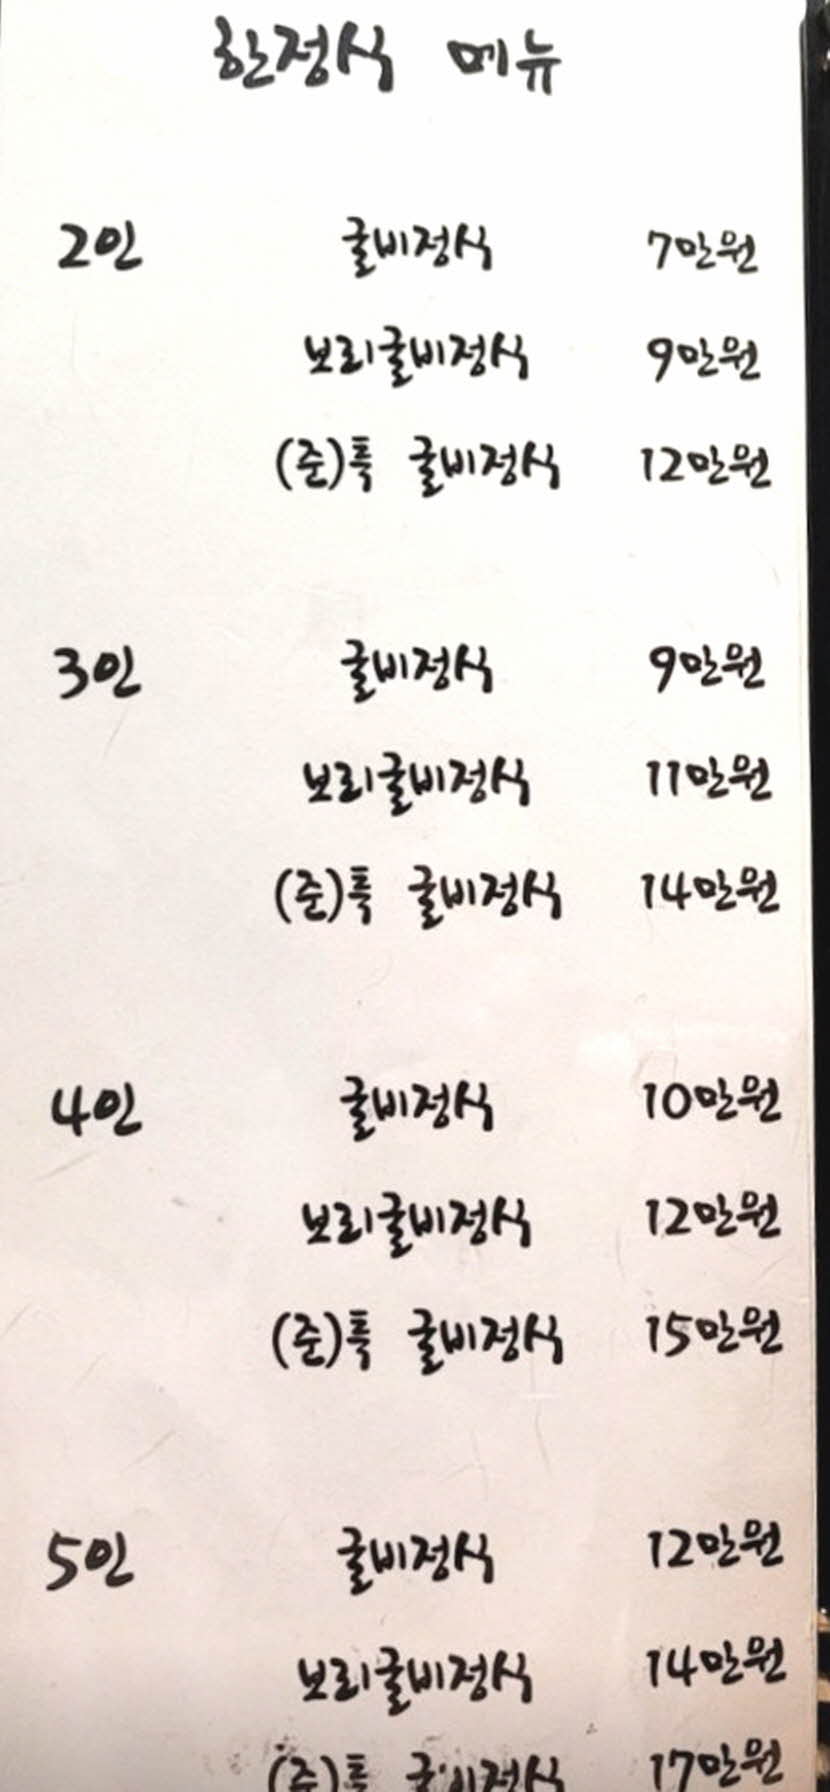 한정식 메뉴
2인 굴비정식 7만원
보리굴비정식 9만원
(준)특 굴비정식 12만원
3인 굴비정식 9만원
보리굴비정식 11만원
(준)특 굴비정식 14만원
4인 굴비정식 10만원
보리굴비정식 12만원
(준)특 굴비정식 15만원
5인 굴비정식 12만원
보리굴비정식 14만원
(준)특 굴비정식 17만원